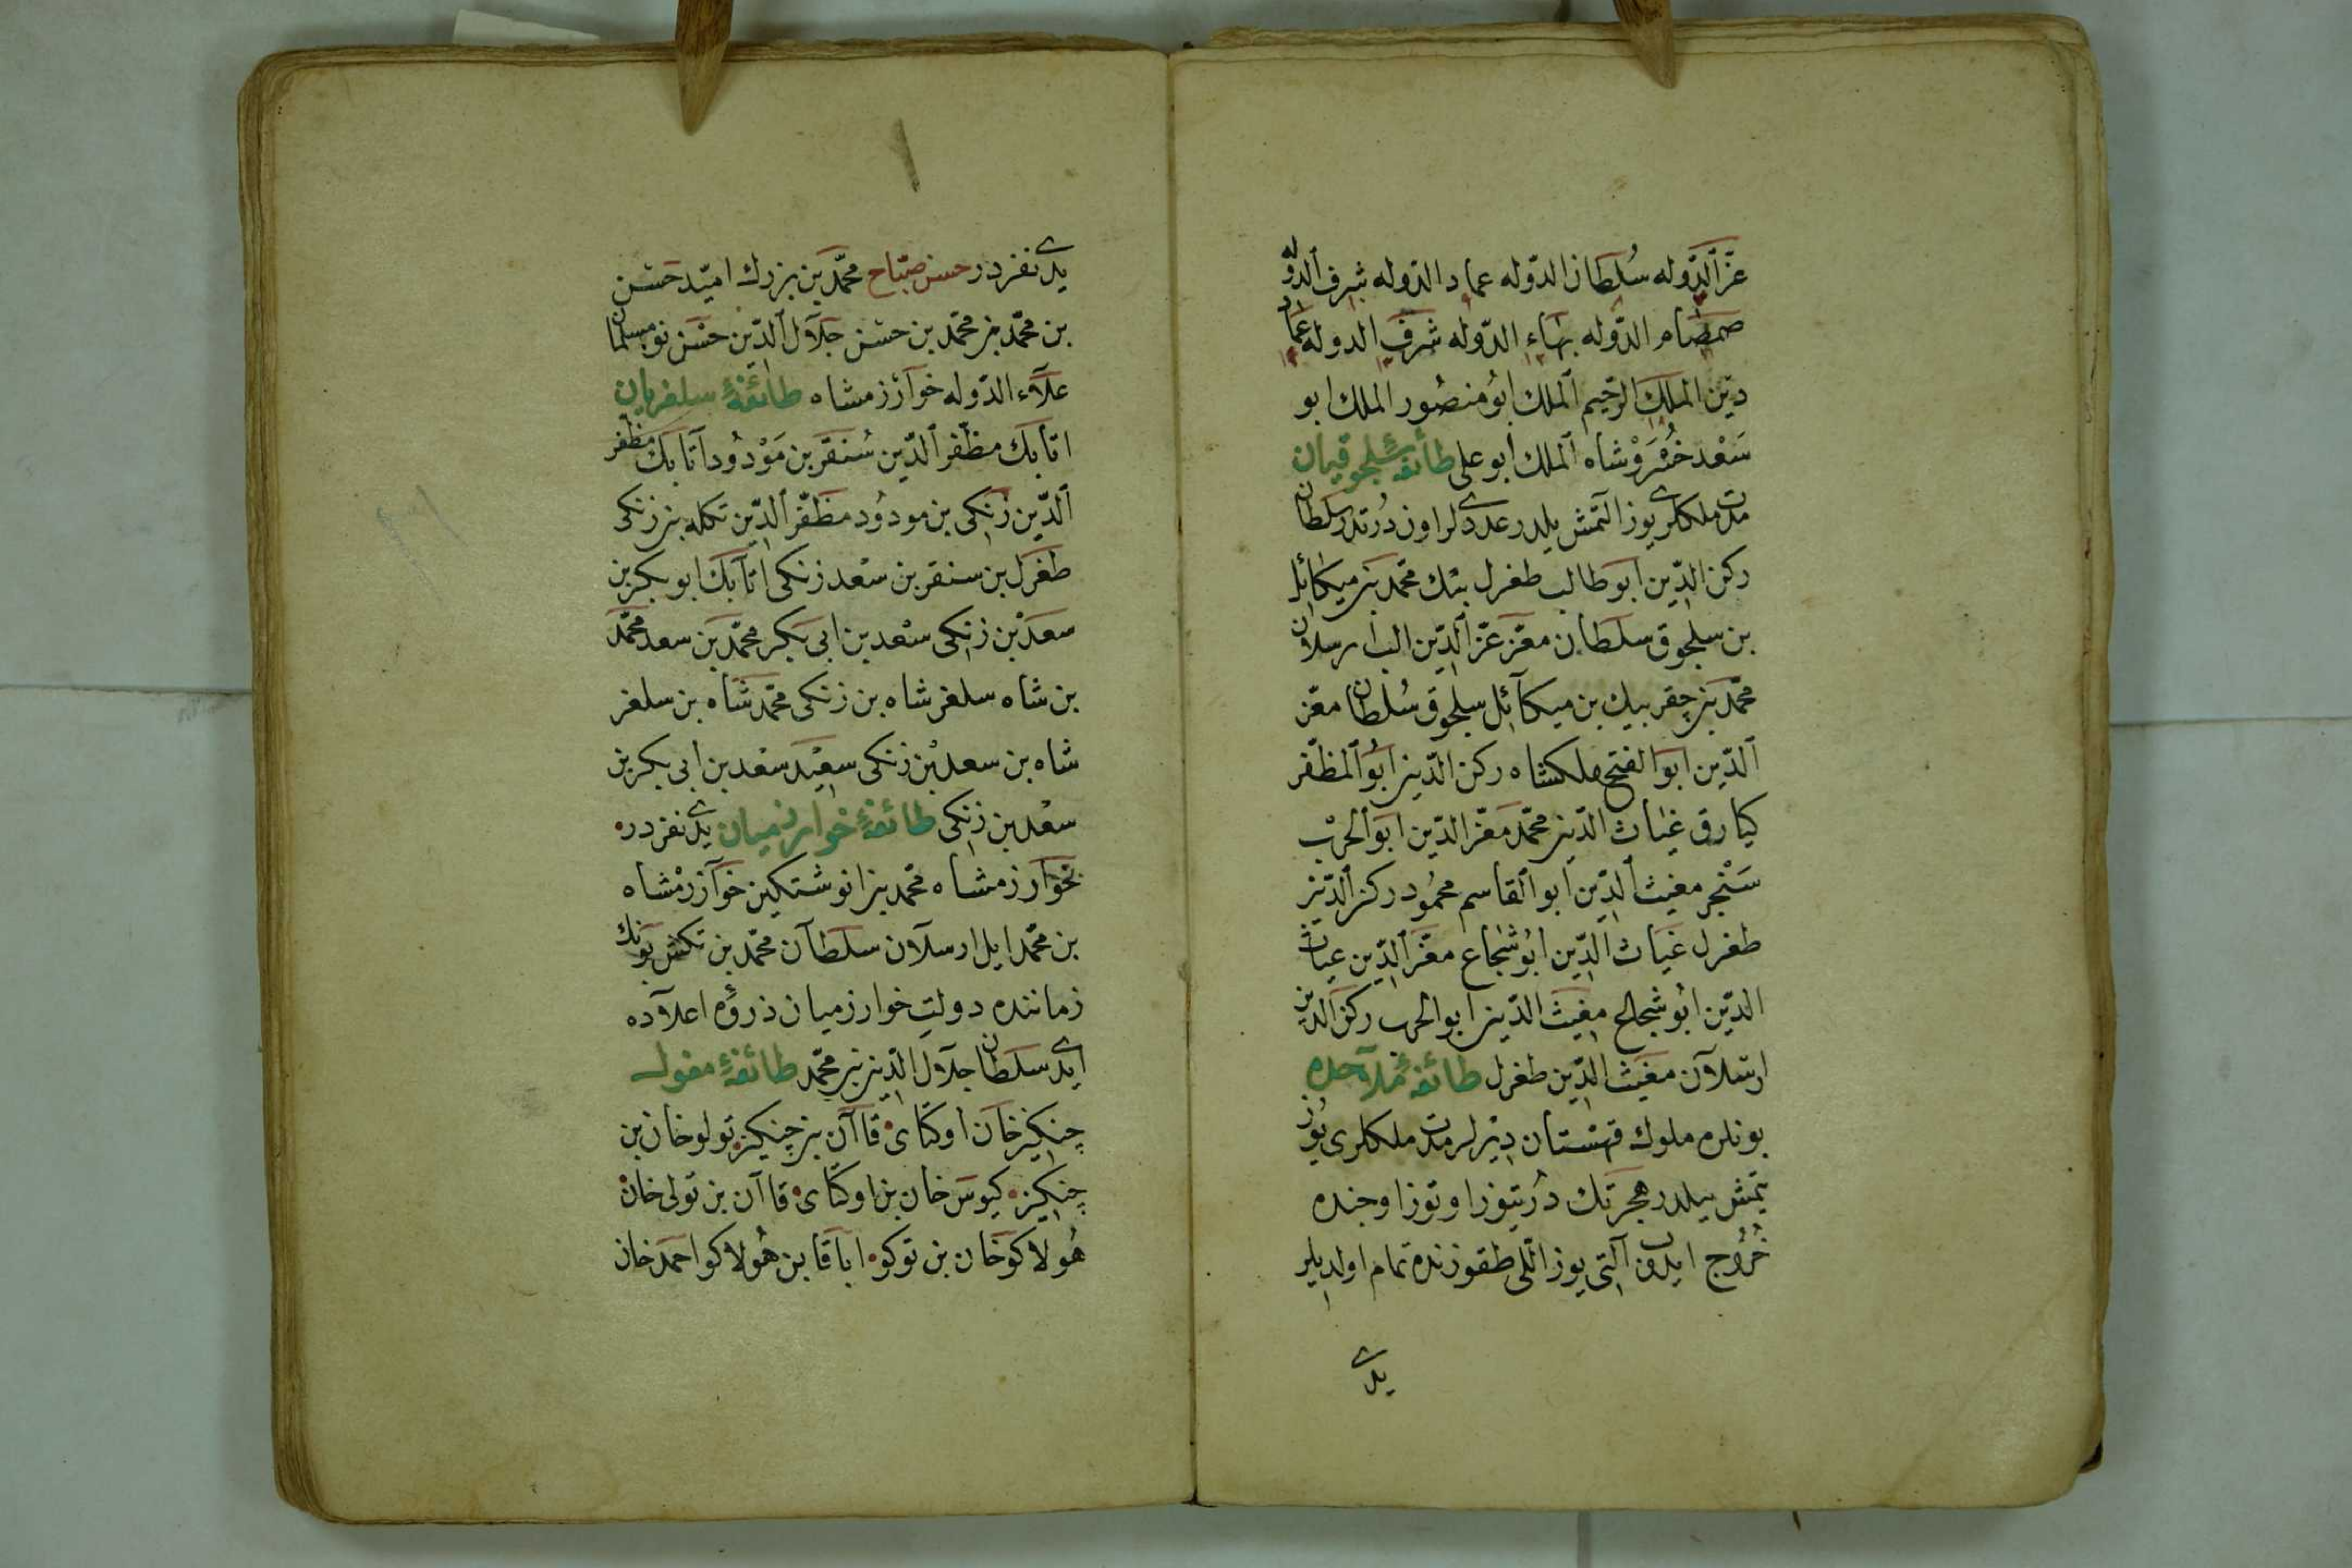 عزّ الدّوله سُلطان الدّوله عماد الدّوله شرف الدّوله
صمصام الدّوله بهاء الدّوله شرف الدوله عماد
دين الملك الرّحيم الملك ابو منصُور الملك ابو
سَعْد خُسْرَوْشاه الملك ابو على طائفهٔ سلجوقيان
مدت ملكلرى يوز التمش يلدر عددلرى اون دُرتدر سلطان
ركن الدّين ابو طالب طغرل بيك محمّد بن ميكائل
بن سلجوق سلطان معزّ عزّ الدّين الب ارسلان
محمّد بن چقر بيك بن ميكائل سلجوق سُلطان معزّ
الدّين ابو الفتح ملكشاه ركن الدّين ابو المظفّر
كيارق غياث الدّين محمّد معزّ الدّين ابو الحرْب
سَنْجر مغيث الدّين ابو القاسم محمُود ركن الدّين
طغرل غياث الدّين ابو شجاع معزّ الدّين غياث
الدّين ابو شجاع مغيث الدّين ابو الحرب ركن الدّين
ارسلان مغيث الدّين طغرل طائفهٔ ملاحده
بونلره ملوك قهستان ديرلر مدت ملكلرى يوز
يتمش ييلدر هجرتك دُرتيوز اوتوز اوچنده
خُرُوج ايدوب آلتى يوز اللى طقوزنده تمام اولديلر
يدى
يدى نفردر حسن صبّاح محمّد بن بزرك اميّد حَسَن
بن محمّد بن محمّد بن حسن جلال الدّين حسن نومسلمان
علاء الدّوله خوارزمشاه طائفهٔ سلغريان
اتابك مظفّر الدّين سُنقر بن مَوْدُود اتابك مظفر
الدّين زنكى بن مودُود مظفّر الدّين تكله بن زنكى
طغرل بن سنقر بن سعْد زنكى اتابك ابو بكر بن
سعدْ بن زنكى سعْد بن ابى بكر محمّد بن سعد محمّد
بن شاه سلغر شاه بن زنكى محمّد شاه بن سلغر
شاه بن سعد بْن زنكى سعيْد سعْد بن ابى بكر بن
سعْد بن زنكى طائفهٔ خوارزميان يدى نفردر
خوارزمشاه محمّد بن انوشتكين خوارزمْشاه
بن محمّد ايل ارسلان سلطان محمّد بن تكش بونك
زماننده دولتِ خوارزميان ذروهٔ اعلاده
ايدى سلطان جلال الدّين بن محمّد طائفهٔ مغول
چنكيز خان اوكتاى قاآن بن چنكيز تولو خان بن
چنكيز كيوس خان بن اوكتاى قاآن بن تولى خان
هُولاكو خان بن توكو اباقا بن هُولاكو احمد خان